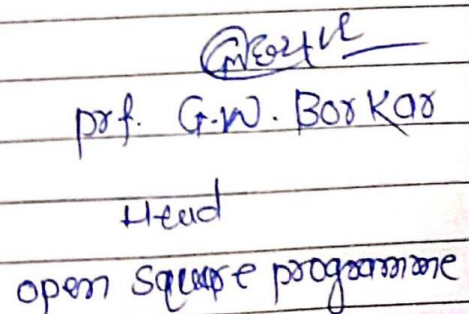 prf. G.W. Borkar
Head
open square programme